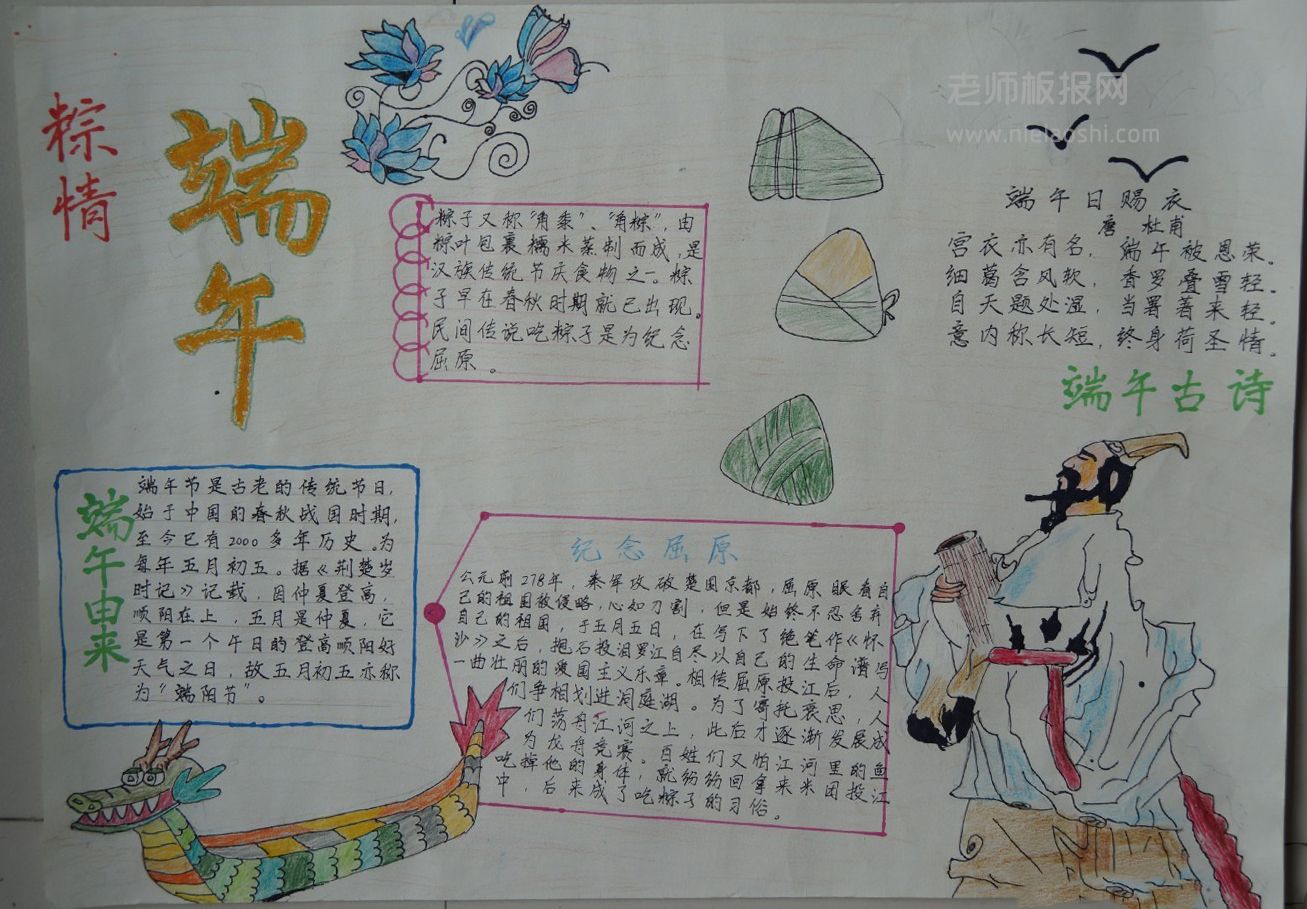 粽情
端午
老师板报网
www.nielaoshi.com
粽子又称"角黍"、"角粽",由
粽叶包裹糯米蒸制而成,是
汉族传统节庆食物之一。粽
子早在春秋时期就已出现。
民间传说吃粽子是为纪念
屈原。
端午日赐衣
唐 杜甫
宫衣亦有名,端午被恩荣。
细葛含风软,香罗叠雪轻。
自天题处湿,当暑著来轻。
意内称长短,终身荷圣情。
端午古诗
端午由来
端午节是古老的传统节日,
始于中国的春秋战国时期,
至今已有2000多年历史。为
每年五月初五。据《荆楚岁
时记》记载,因仲夏登高,
顺阳在上,五月是仲夏,它
是第一个午日的登高顺阳好
天气之日,故五月初五亦称
为"端阳节"。
纪念屈原
公元前278年,秦军攻破楚国京都,屈原眼看自
己的祖国被侵略,心如刀割,但是始终不忍舍弃
自己的祖国,于五月五日,在写下了绝笔作《怀
沙》之后,抱石投汨罗江自尽以自己的生命谱写
一曲壮丽的爱国主义乐章。相传屈原投江后,人
们争相划进洞庭湖。为了寄托哀思,人
们荡舟江河之上,此后才逐渐发展成
为龙舟竞赛。百姓们又怕江河里的鱼
吃掉他的身体,就纷纷回拿来米团投江
中,后来成了吃粽子的习俗。